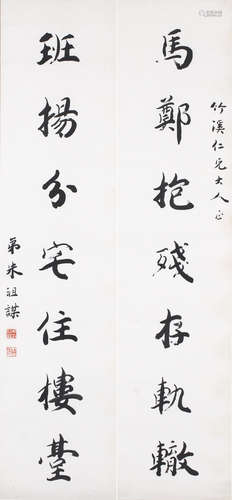 竹溪仁兄大人正
馬鄭抱殘存軌轍
班揚分宅住樓臺
弟朱祖謀